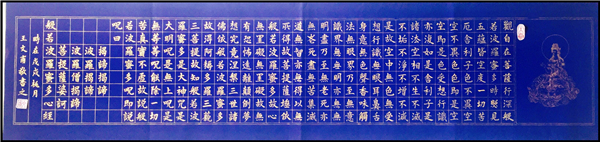 觀自在菩薩行深般
若波羅蜜多時照見
五蘊皆空度一切苦
厄舍利子色不異空
空不異色色即是空
空即是色受想行識
亦復如是舍利子是
諸法空相不生不滅
不垢不淨不增不減
是故空中無色無受
想行識無眼耳鼻舌
身意無色聲香味觸
法無眼界乃至無意
識界無無明亦無無
明盡乃至無老死亦
無老死盡無苦集滅
道無智亦無得以無
所得故菩提薩埵依
般若波羅蜜多故心
無罣礙無罣礙故無
有恐怖遠離顛倒夢
想究竟涅槃三世諸
佛依般若波羅蜜多
故得阿耨多羅三藐
三菩提故知般若波
羅蜜多是大神呪是
大明呪是無上呪是
無等等呪能除一切
苦真實不虛故說般
若波羅蜜多呪即說
呪曰
揭諦揭諦
波羅揭諦
波羅僧揭諦
菩提薩婆訶
般若波羅蜜多心經
時在戊戌月
王文敬書之